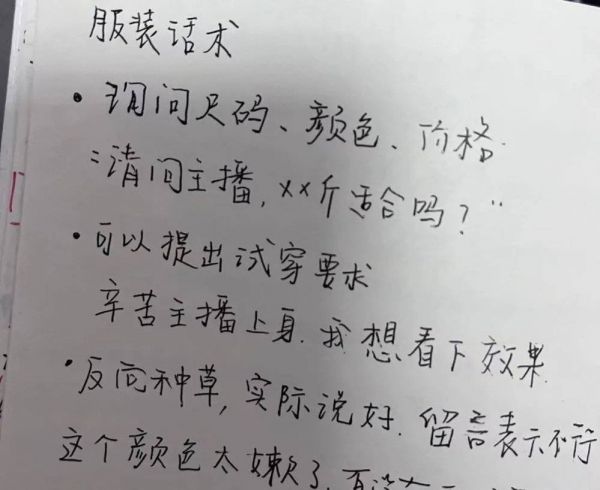 服装话术
·询问尺码、颜色、价格.
“请问主播,××斤适合吗?”
·可以提出试穿要求
辛苦主播上身.我想看下效果.
·反向种草,实际说好.留言表示不行
这个颜色太嫩了,